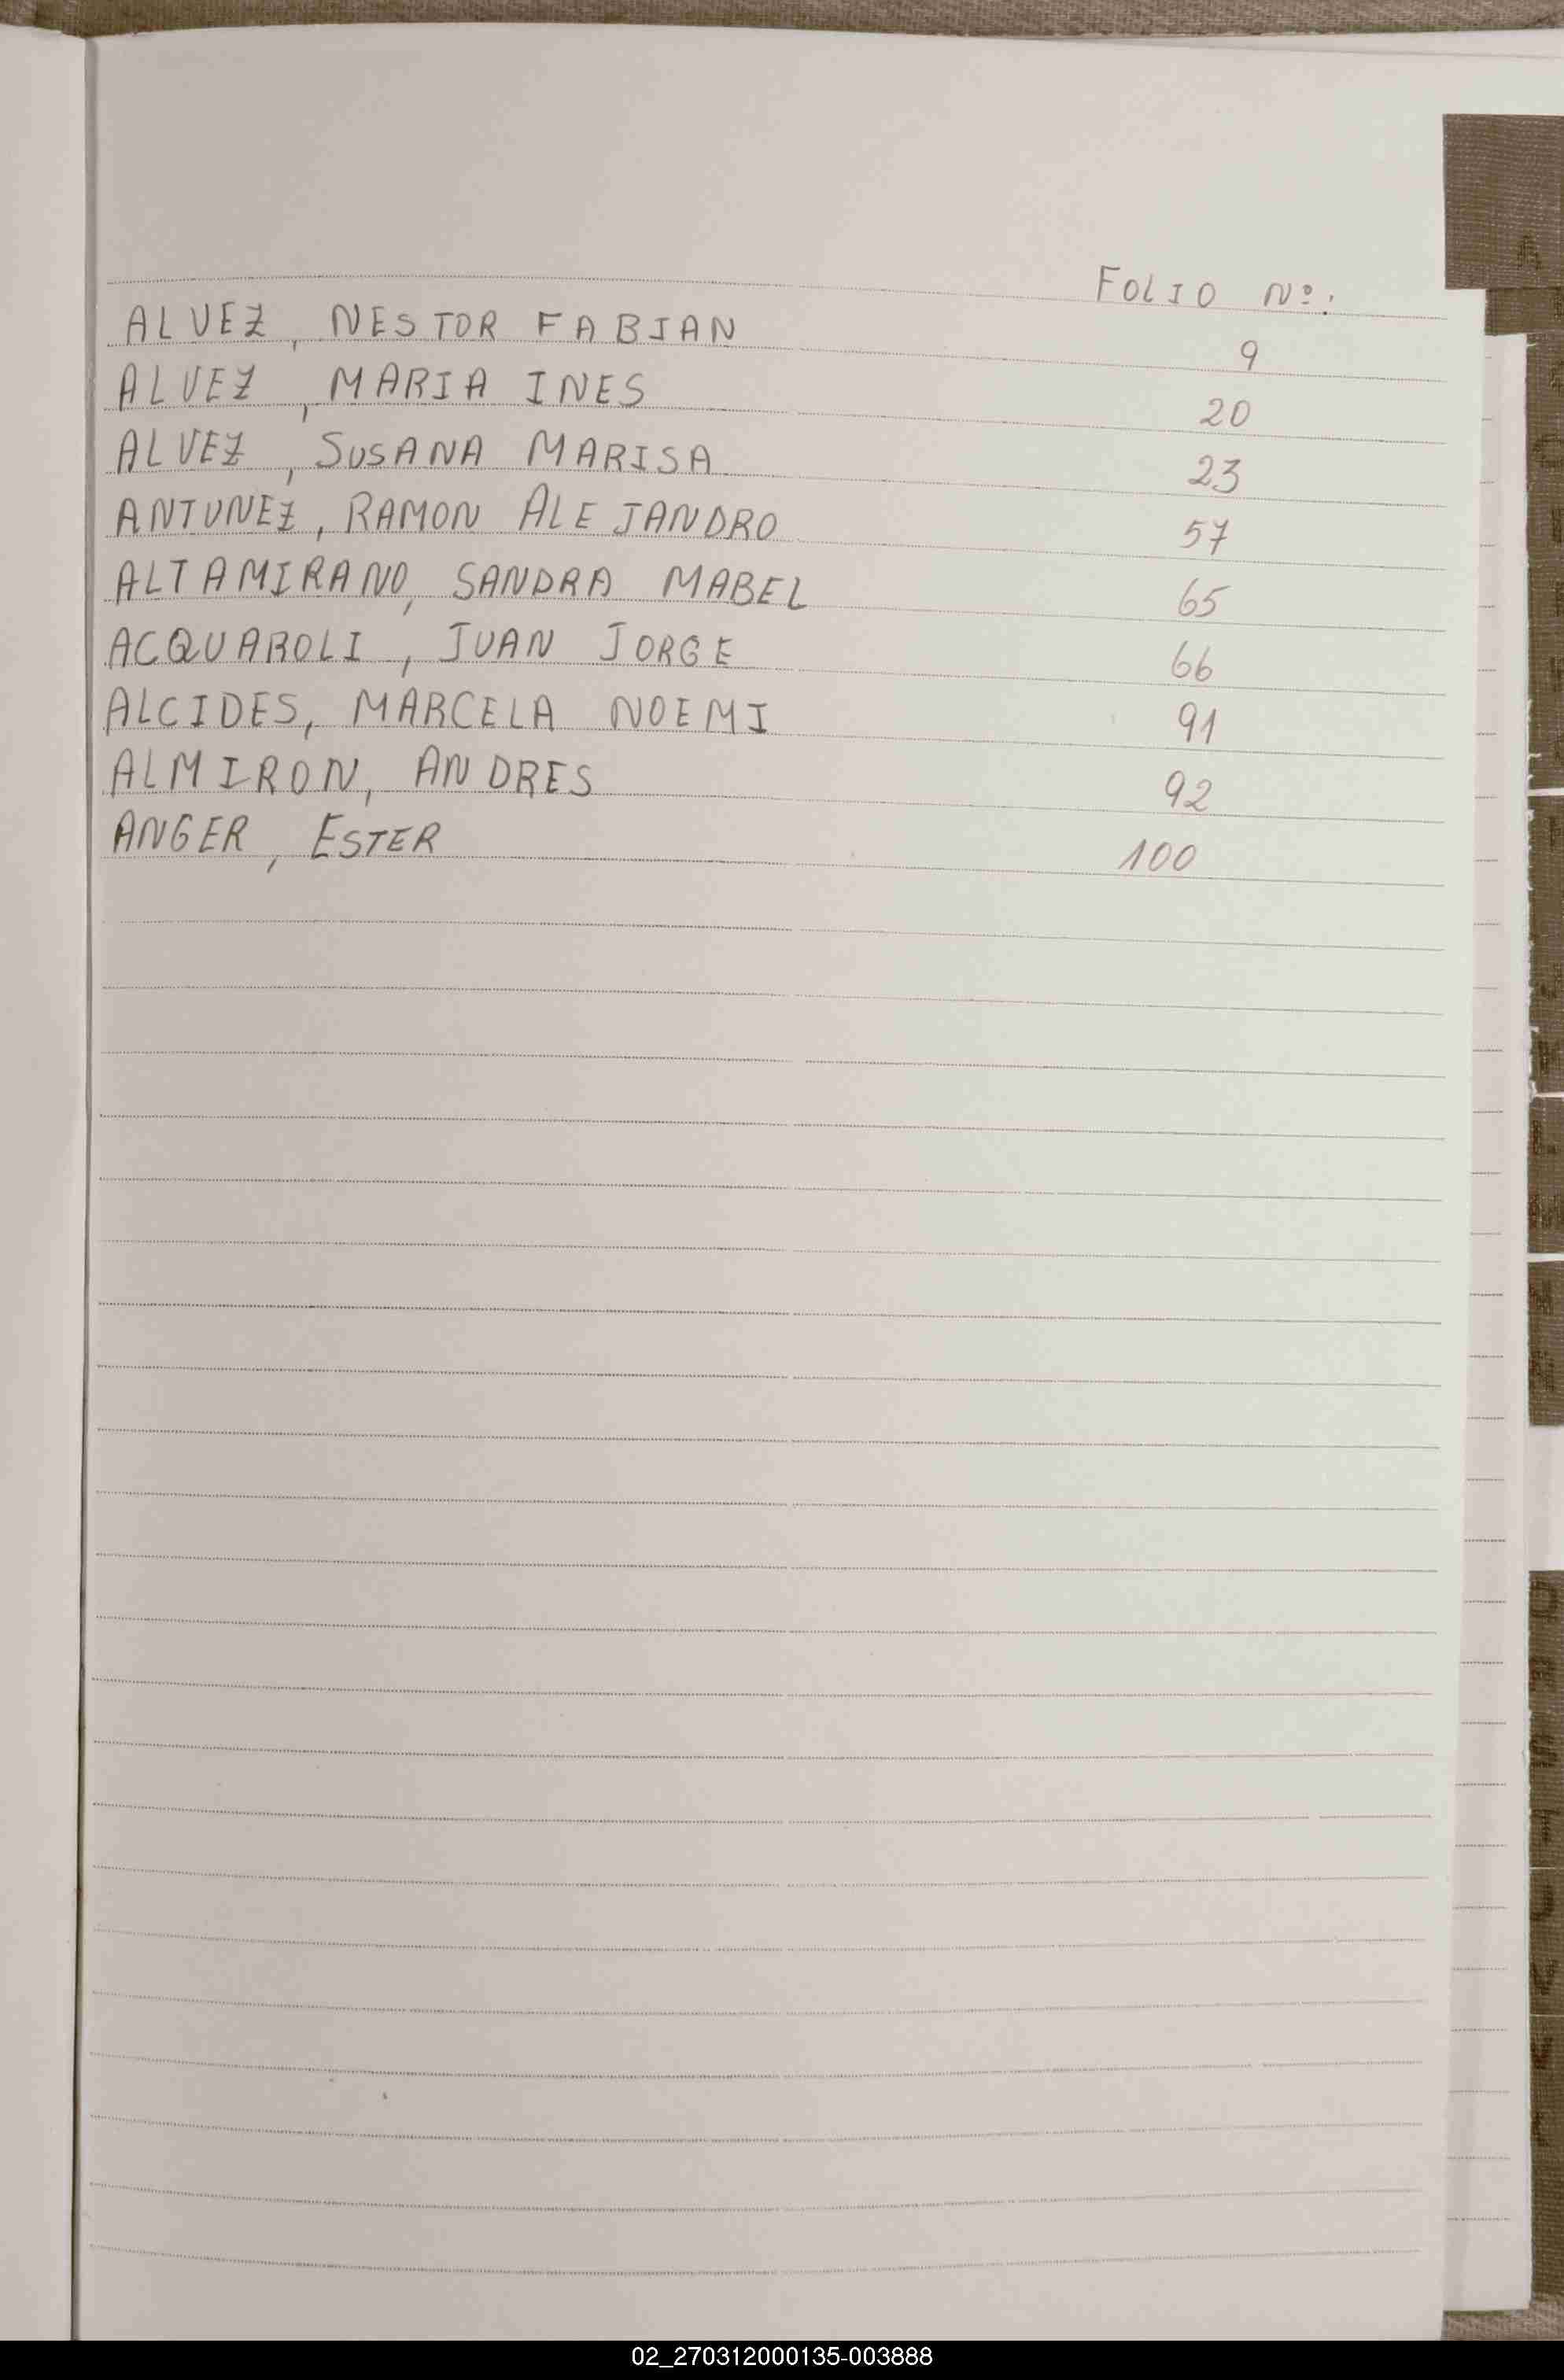 FOLIO Nº:
ALVEZ, NESTOR FABIAN 9
ALVEZ, MARIA INES 20
ALVEZ, SUSANA MARISA 23
ANTUNEZ, RAMON ALEJANDRO 57
ALTAMIRANO, SANDRA MABEL 65
ACQUAROLI, JUAN JORGE 66
ALCIDES, MARCELA NOEMI 91
ALMIRON, ANDRES 92
ANGER, ESTER 100
A
02_270312000135-003888